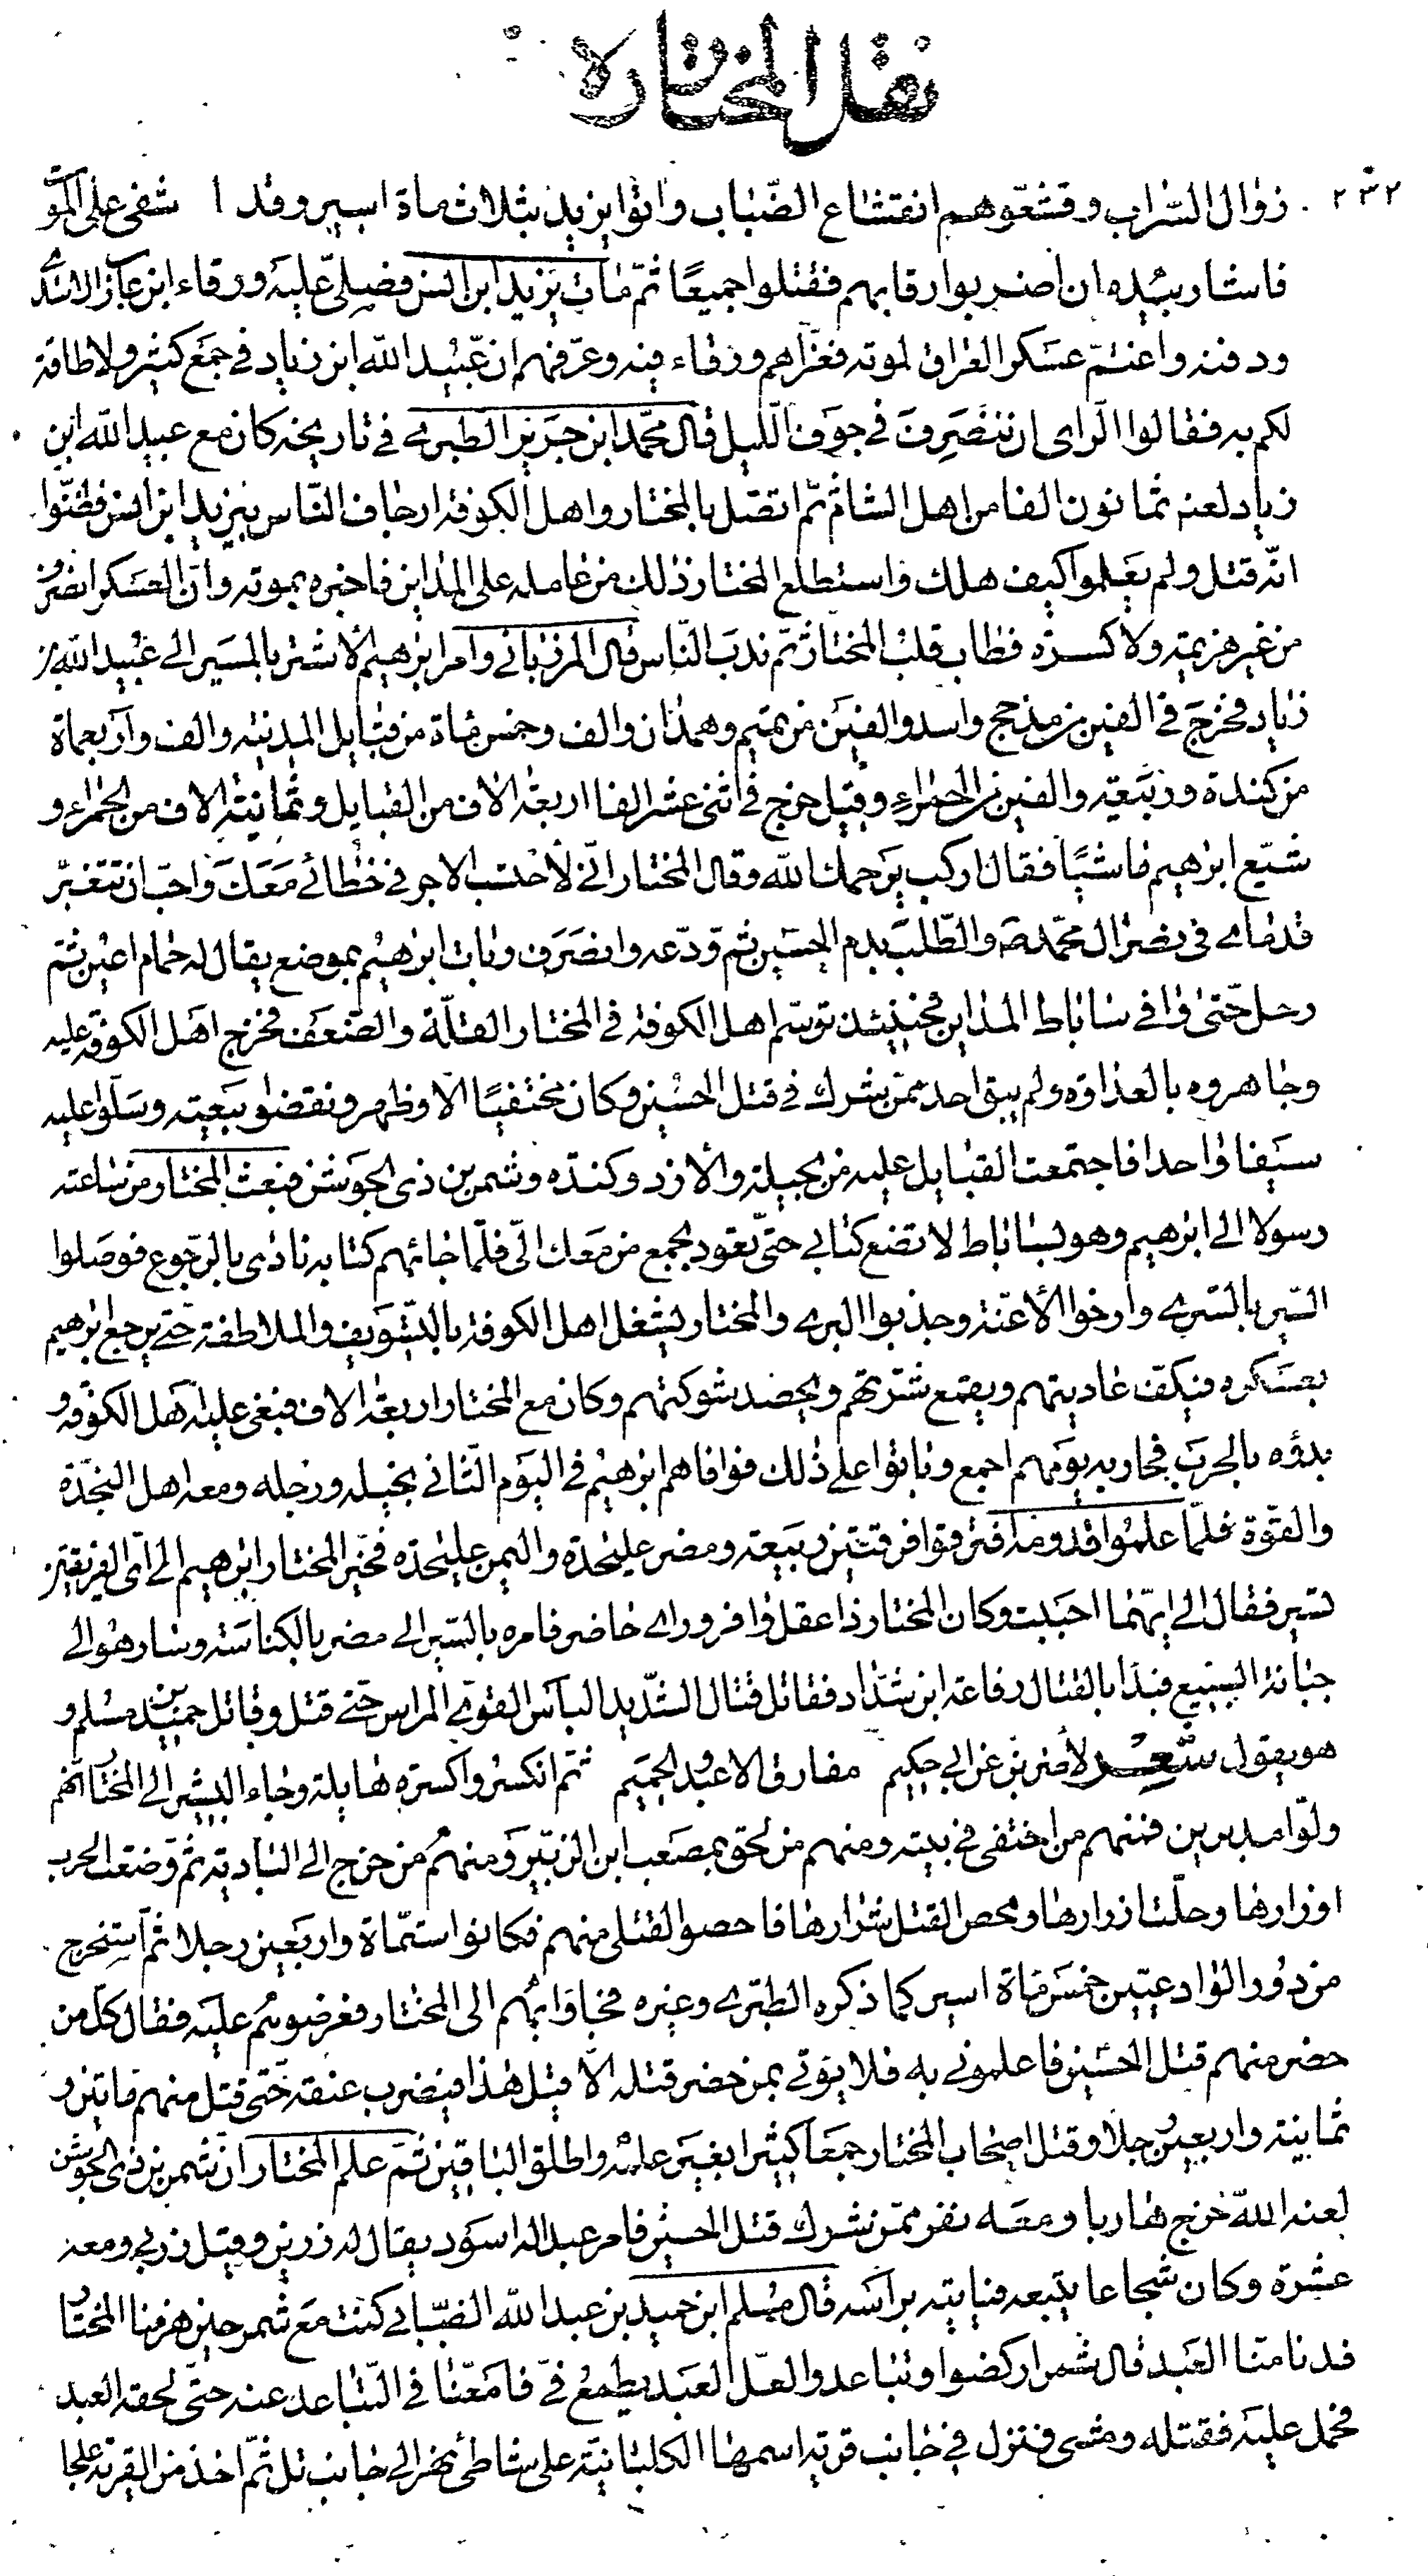 نقل المختاره
٢٣٢
زوال السّراب وقشعّوهم انقشاع الضّباب واتوا يزيد بثلاث ماة اسير وقد ا شفى على الموت
فاشار بيده ان اضربوا رقابهم فقتلوا جميعًا ثمّ مات يزيد ابن انس فصلّى عليه ورقاء ابن عازب الاسدى
ودفنه واغتمّ عسكر العراق لموته فعزّاهم ورقاء فيه وعرّفهم ان عبيد الله ابن زياد في جمع كثير ولا طاقة
لكم به فقالوا الراى ان ننصرف في جوف اللّيل قال محمّد ابن جرير الطبرى في تاريخه كان مع عبيد الله ابن
زياد لعنه ثمانون الفا من اهل الشام ثمّ اتصل بالمختار واهل الكوفة ارجاف النّاس بيزيد ابن انس فظنّوا
انّه قتل ولم يعلموا كيف هلك واستطلع المختار ذلك من عامله على المداين فاخبره بموته وانّ العسكر انصرف
من غير هزيمة ولا كسرة فطاب قلب المختار ثمّ ندب النّاس قال المرزبانى وامر ابرهيم الأشتر بالمسير الى عبيد الله بن
زياد فخرج في الفين من مذحج واسد والفين من تميم وهمدان والف وخمس مأة من قبايل المدينة والف واربعماة
من كندة وربيعة والفين من الحمراء وقيل خرج في اثنى عشر الفا اربعة الاف من القبايل وثمانية الاف من الحمراء و
شيّع ابرهيم ماشيًا فقال اركب يرحمك الله وقال المختار انّى لأحتسب الاجر في خطائى معك واحبّ ان تتغبّر
قدماى في نصر ال محمّد ص والطّلب بدم الحسين ثم ودّعه وانصرف وبات ابرهيم بموضع يقال له حمام اعين ثمّ
رحل حتّى وافى ساباط المداين فحينئذ توسّم اهل الكوفة في المختار القلّة والضّعف فخرج اهل الكوفة عليه
وجاهروه بالعداوة ولم يبق احد ممّن شرك في قتل الحسين وكان مختفيًا الّا وظهر ونقضوا بيعته وسلّوا عليه
سيفا واحدا فاجتمعت القبايل عليه من بجيلة والأزد وكندة وشمر بن ذى الجوشن فبعث المختار من ساعته
رسولا الى ابرهيم وهو بساباط لا تضع كتابى حتّى تعود بجمع من معك الىّ فلمّا جائهم كتابه نادى بالرجوع فوصلوا
السّير بالسّرى وارخوا الأعنّة وجذبوا البرى والمختار يشغل اهل الكوفة بالتسويف والملاطفة حتّى يرجع ابرهيم
بعسكره فيكفّ عاديتهم ويقمع شرّتهم ويحضد شوكتهم وكان مع المختار اربعة الاف فبغى عليه اهل الكوفة و
بدؤه بالحرب فحاربه يومهم اجمع وباتوا على ذلك فوافاهم ابرهيم في اليوم الثّانى بخيله ورجله ومعه اهل النجدة
والقوّة فلمّا علموا قدومه افترقوا فرقتين ربيعة ومضر عليحدة واليمن عليحده فخيّر المختار ابرهيم الى اىّ الفريقين
تسير فقال الى ايّهما احببت وكان المختار ذا عقل وافر وراى حاضر فامره بالسّير الى مضر بالكناسة وسار هو الى
جبانة السبيع فبدا بالقتال رفاعة ابن شدّاد فقاتل قتال الشّديد البأس القوىّ المراس حتّى قتل وقاتل حميد بن مسلم و
هو يقول شعر لأضربنّ عن ابى حكيم مفارق الاعبد والحميم ثمّ انكسروا كسرة هايلة وجاء البشير الى المختار انّهم
ولّوا مدبرين فمنهم من اختفى في بيته ومنهم من لحق بمصعب ابن الزبير ومنهم من خرج الى البادية ثمّ وضعت الحرب
اوزارها وحلّت ازرارها ومحص القتل شرارها فاحصوا القتلى منهم فكانوا ستّماة واربعين رجلا ثمّ استخرج
من دور الوادعيّين خمس مأة اسير كما ذكره الطبرى وغيره فجاؤا بهم الى المختار فعرضوهم عليه فقال كلّ من
حضر منهم قتل الحسين فاعلمونى به فلا يؤتى بمن حضر قتله الّا قيل هذا فيضرب عنقه حتّى قتل منهم ماتين و
ثمانية واربعين رجلا وقتل اصحاب المختار جمعا كثيرا بغير علمه واطلق الباقين ثمّ علم المختار ان شمر بن ذى الجوشن
لعنه الله خرج هاربا ومعه نفر ممّن شرك قتل الحسين فامر عبدا له اسود يقال له زرين وقيل زربى ومعه
عشرة وكان شجاعا يتبعه فياتيه براسه قال مسلم ابن حميد بن عبد الله الضّبابى كنت مع شمر حين هزمنا المختار
فدنا منّا العبد قال شمر اركضوا وتباعدوا لعلّ العبد يطمع فىّ فامعنّا في التّباعد عنه حتّى لحقه العبد
فحمل عليه فقتله ومشى فنزل في جانب قرية اسمها الكلبانيّة على شاطئ نهر الى جانب تل ثمّ اخذ من القرية علجا